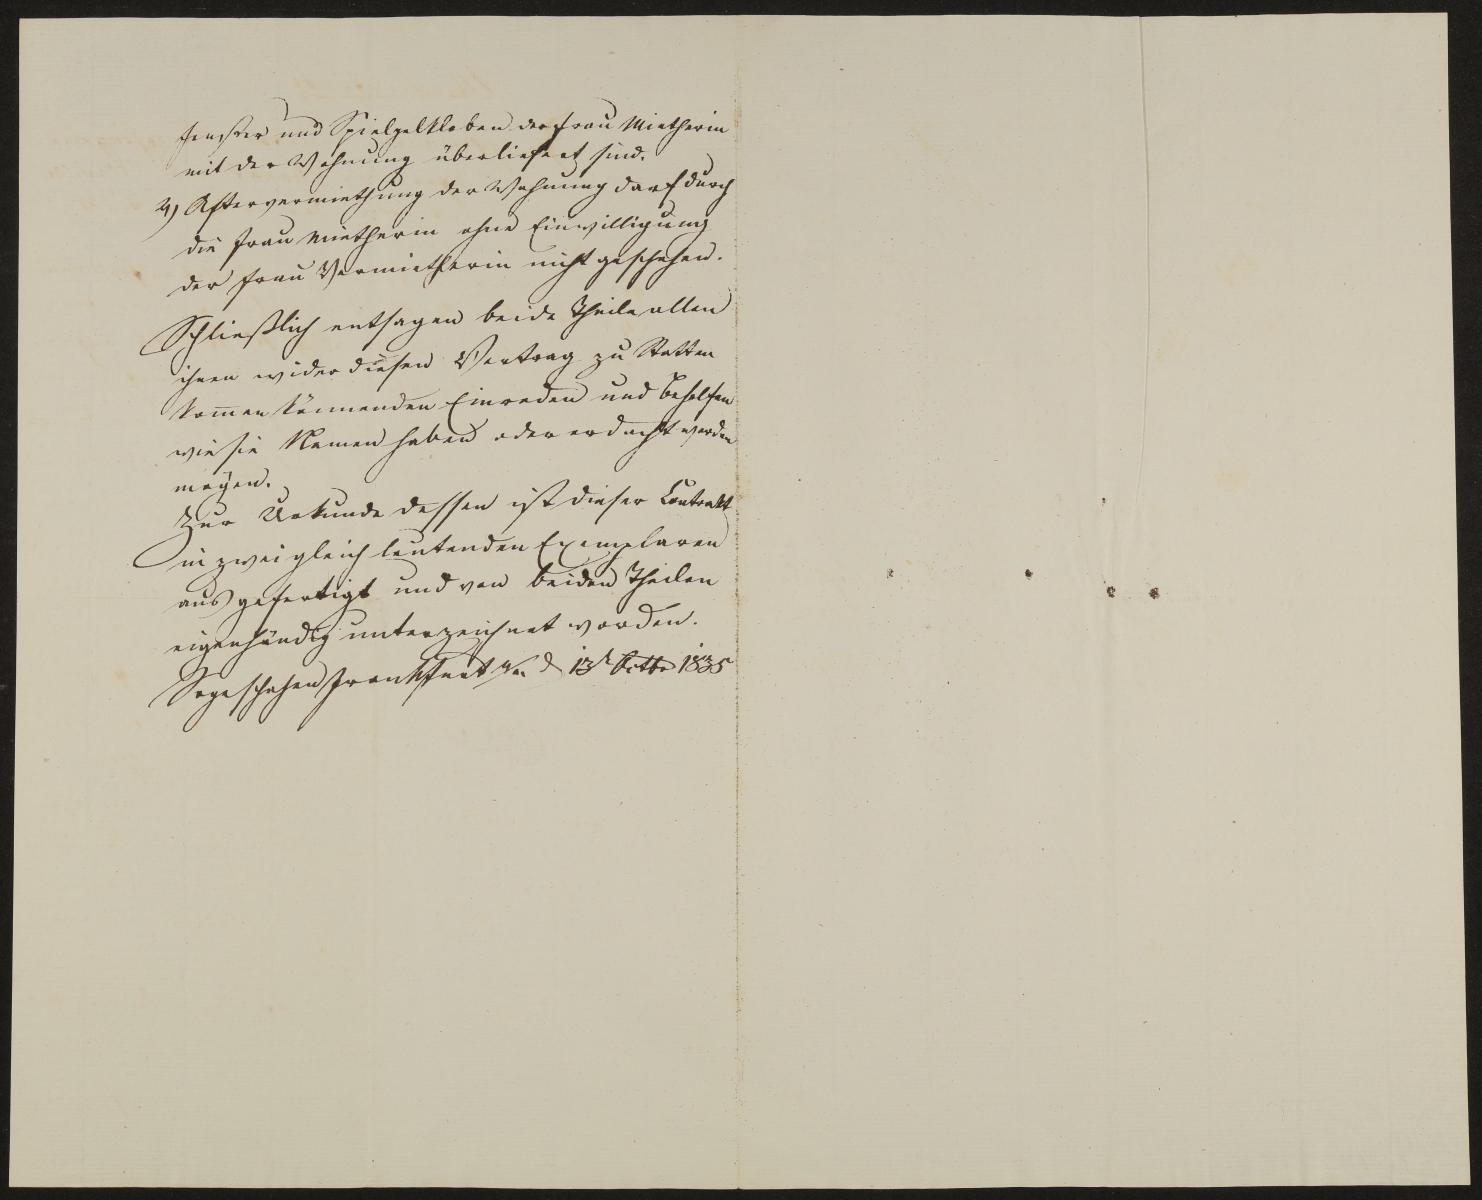 Fenster und Spielgelkloben der Frau Mietherin
mit der Wohnung überliefert sind.
4) Aftervermiethung der Wohnung darf durch
die Frau Mietherin ohne Einwilligung
der Frau Vermietherin nicht geschehen.
Schließlich entsagen beide Theile allen
ihnen wider diesen Vertrag zu Statten
kom̄en könnenden Einreden und Behelfen
wie sie Namen haben oder erdacht werden
mögen.
Zur Urkunde dessen ist dieser Contrakt
in zwei gleich lautenden Exemplaren
ausgefertigt und von beiden Theilen
eigenhändig unterzeichnet worden.
So geschehen Frankfurt a/m d 13t Octbr 1835